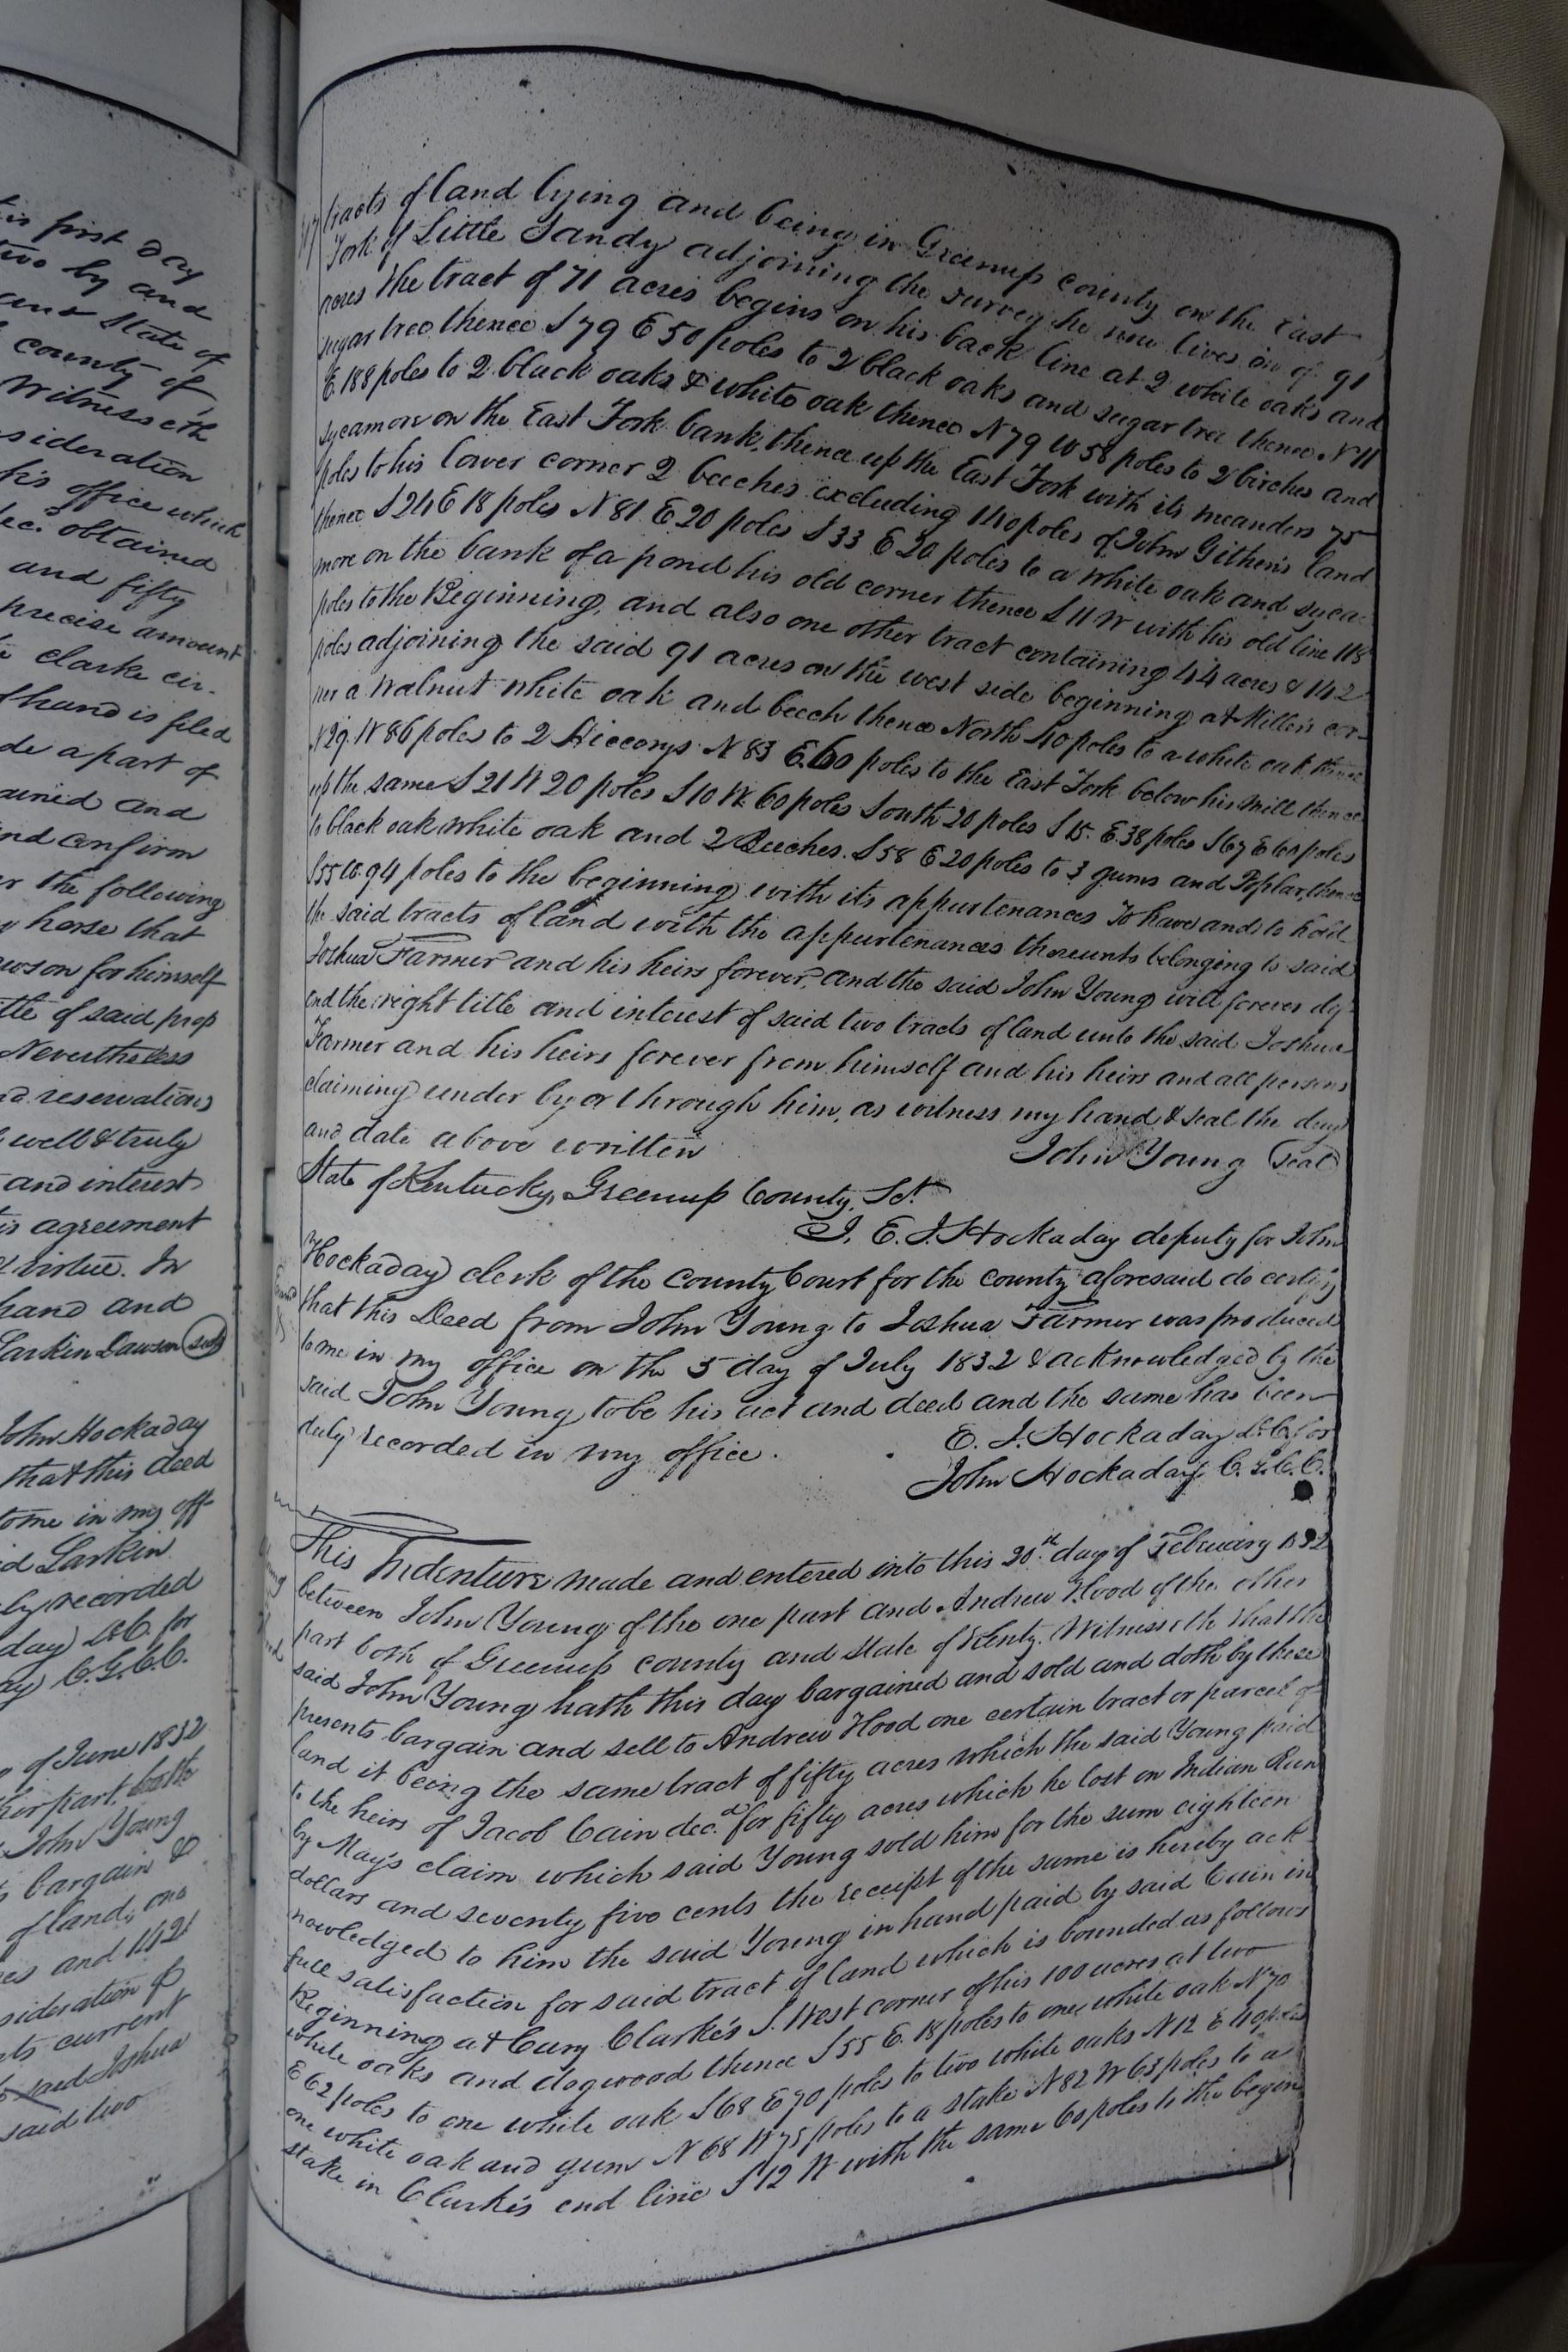 is first day
two by and
and State of
county of
Witnesseth
sideration
his office which
dec. obtained
and fifty
precise amount
clarke cir-
hand is filed
de a part of
ained and
nd confirm
er the following
horse that
wson for himself
tle of said prop
Nevertheless
nd reservations
well & truly
and interest
is agreement
virtue. In
hand and
Larkin Dawson seal
John Hockaday
that this deed
to me in my off
id Larkin
ly recorded
day D.C. for
ay C.G.C.C.
of June 1832
her part, both
John Young
bargain &
of land, one
es and 142
sideration of
ts current
said Joshua
said two
tracts of land lying and being in Greenup county on the East
Fork of Little Sandy adjoining the survey he now lives on of 91
acres the tract of 71 acres begins on his back line at 2 white oaks and
sugar tree thence S 79 E 50 poles to 2 black oaks and sugar tree thence N 11
E. 188 poles to 2 black oaks & white oak thence N 79 W 58 poles to 2 birches and
sycamore on the East Fork bank, thence up the East Fork with its meanders 75
poles to his lower corner 2 beeches excluding 140 poles of John Githen's land
thence S 24 E 18 poles N 81 E 20 poles S 33 E 20 poles to a white oak and syca-
more on the bank of a pond his old corner thence S 11 W with his old line 118
poles to the Beginning, and also one other tract containing 44 acres & 142
poles adjoining the said 91 acres on the west side beginning at Miller's cor-
ner a walnut white oak and beech thence North 40 poles to a white oak thence
N 29. W 86 poles to 2 Hiccorys N 83 E. 60 poles to the East Fork below his mill thence
up the same S 21 W 20 poles S 10 W. 60 poles South 20 poles S 15. E. 38 poles S 67 E 60 poles
to black oak white oak and 2 Beeches. S 58 E 20 poles to 3 gums and Poplar, thence
S 55 W. 94 poles to the beginning with its appurtenances To have and to hold
the said tracts of land with the appurtenances thereunto belonging to said
Joshua Farmer and his heirs forever, and the said John Young will forever def-
end the right title and interest of said two tracts of land unto the said Joshua
Farmer and his heirs forever from himself and his heirs and all persons
claiming under by or through him, as witness my hand & seal the day
and date above written John Young Seal
State of Kentucky, Greenup County, Sct.
I, E. J. Hockaday deputy for John
Hockaday clerk of the County Court for the county aforesaid do certify
that this Deed from John Young to Joshua Farmer was produced
to me in my office on the 5 day of July 1832 & acknowledged by the
said John Young to be his act and deed and the same has been
duly recorded in my office. E. J. Hockaday D.C. for
John Hockaday C.G.C.C.
This Indenture made and entered into this 20th. day of February 1832
between John Young of the one part and Andrew Hood of the other
part both of Greenup county and State of Kenty. Witnesseth that the
said John Young hath this day bargained and sold and doth by these
presents bargain and sell to Andrew Hood one certain tract or parcel of
land it being the same tract of fifty acres which the said Young paid
to the heirs of Jacob Cain decd. for fifty acres which he lost on Indian Run
by May's claim which said Young sold him for the sum eighteen
dollars and seventy five cents the receipt of the same is hereby ack-
nowledged to him the said Young in hand paid by said Cain in
full satisfaction for said tract of land which is bounded as follows
Beginning at Cary Clarke's S. West corner of his 100 acres at two
white oaks and dogwood thence S 55 E. 18 poles to one white oak N 70
E 62 poles to one white oak S 68 E 70 poles to two white oaks N 12 E 40 poles
one white oak and gum N 68 W 75 poles to a stake N 82 W 63 poles to a
stake in Clarke's end line S 12 W with the same 60 poles to the begin